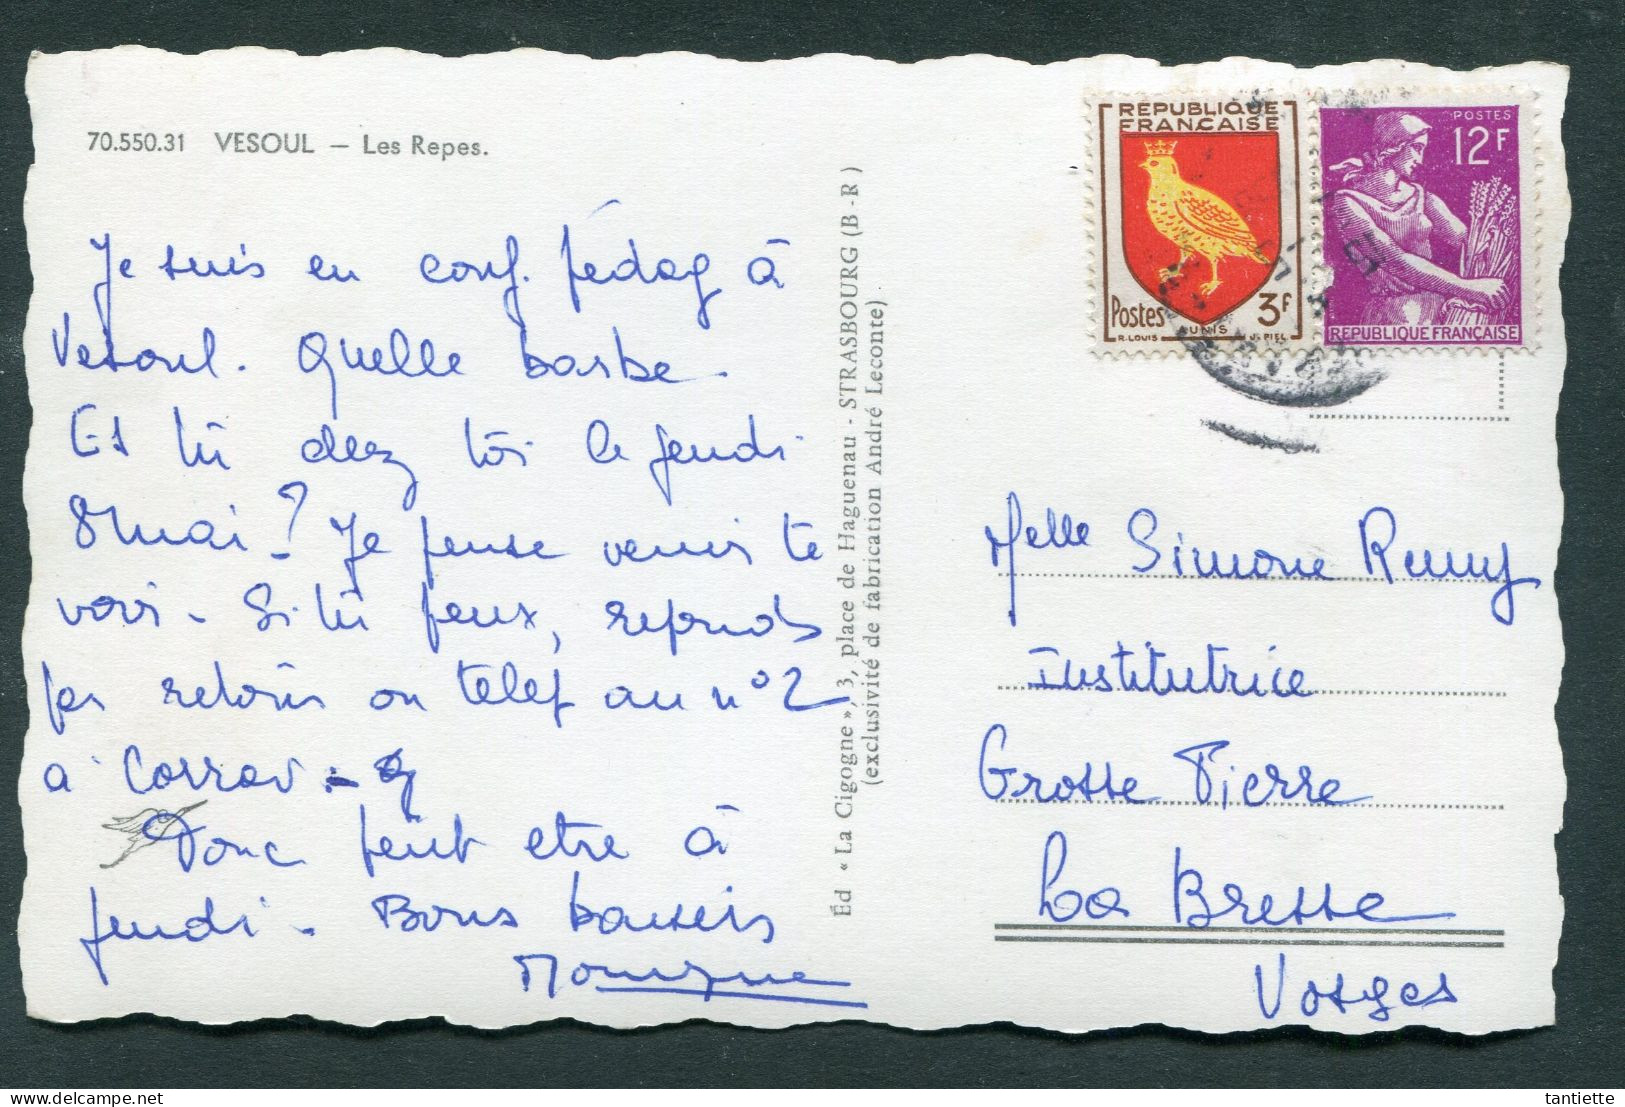 70.550.31 VESOUL – Les Repes.
Je suis en conf. pédag à
Vesoul. Quelle barbe.
Es tu chez toi le jeudi
8 mai ? Je pense venir te
voir – Si tu peux, réponds
par retour ou télép au n° 2
à
Donc peut etre à
jeudi – Bons baisers
Monique
Éd « La Cigogne », 3, place de Haguenau - STRASBOURG (B - R)
(exclusivité de fabrication André Leconte)
RÉPUBLIQUE
FRANÇAISE
Postes 3F
AUNIS
R. LOUIS J. PIEL
POSTES
12F
REPUBLIQUE FRANÇAISE
Melle Simone Remy
Institutrice
Grosse Pierre
La Bresse
Vosges
tantiette